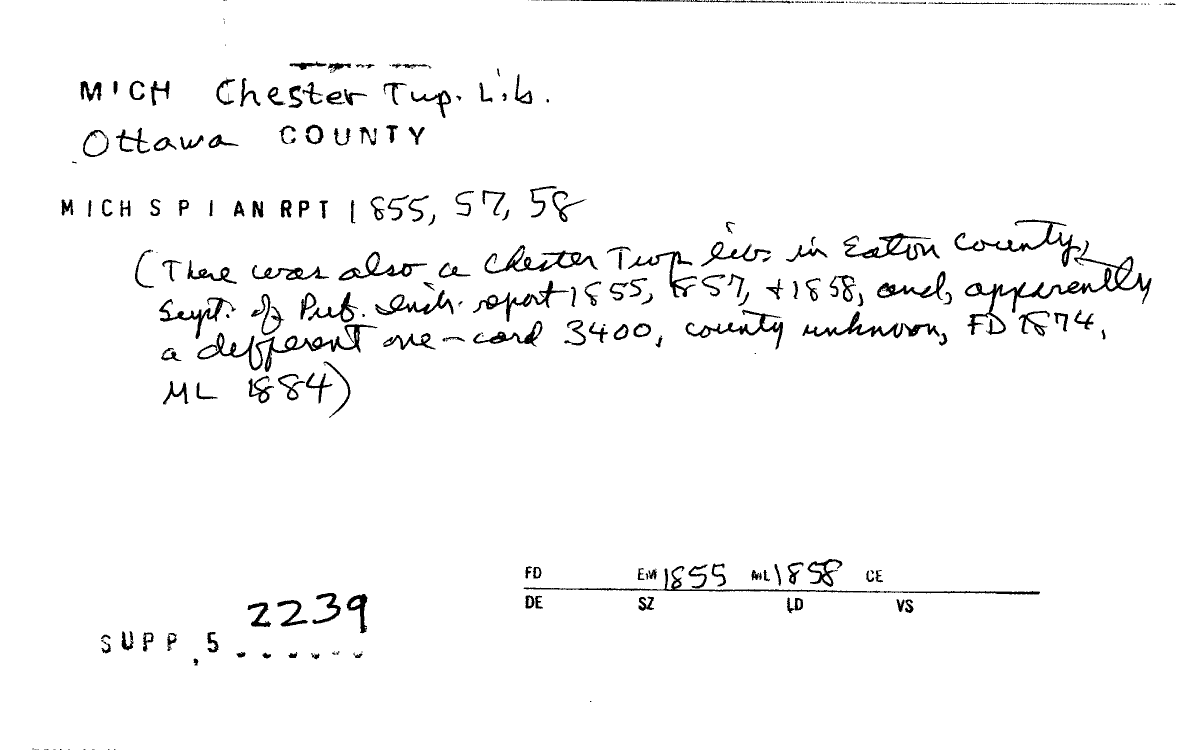 MICH Chester Twp. Lib.
Ottawa COUNTY
MICH S P I AN RPT 1855, 57, 58
(There was also a Chester Twp lib. in Eaton County,
Supt. of Pub. Instr. report 1855, 1857, + 1858, and, apparently
a different one - card 3400, county unknown, FD 1874,
ML 1884)
FD EM 1855 ML 1858 CE
DE SZ LD VS
2239
SUPP. 5 . . . . . .